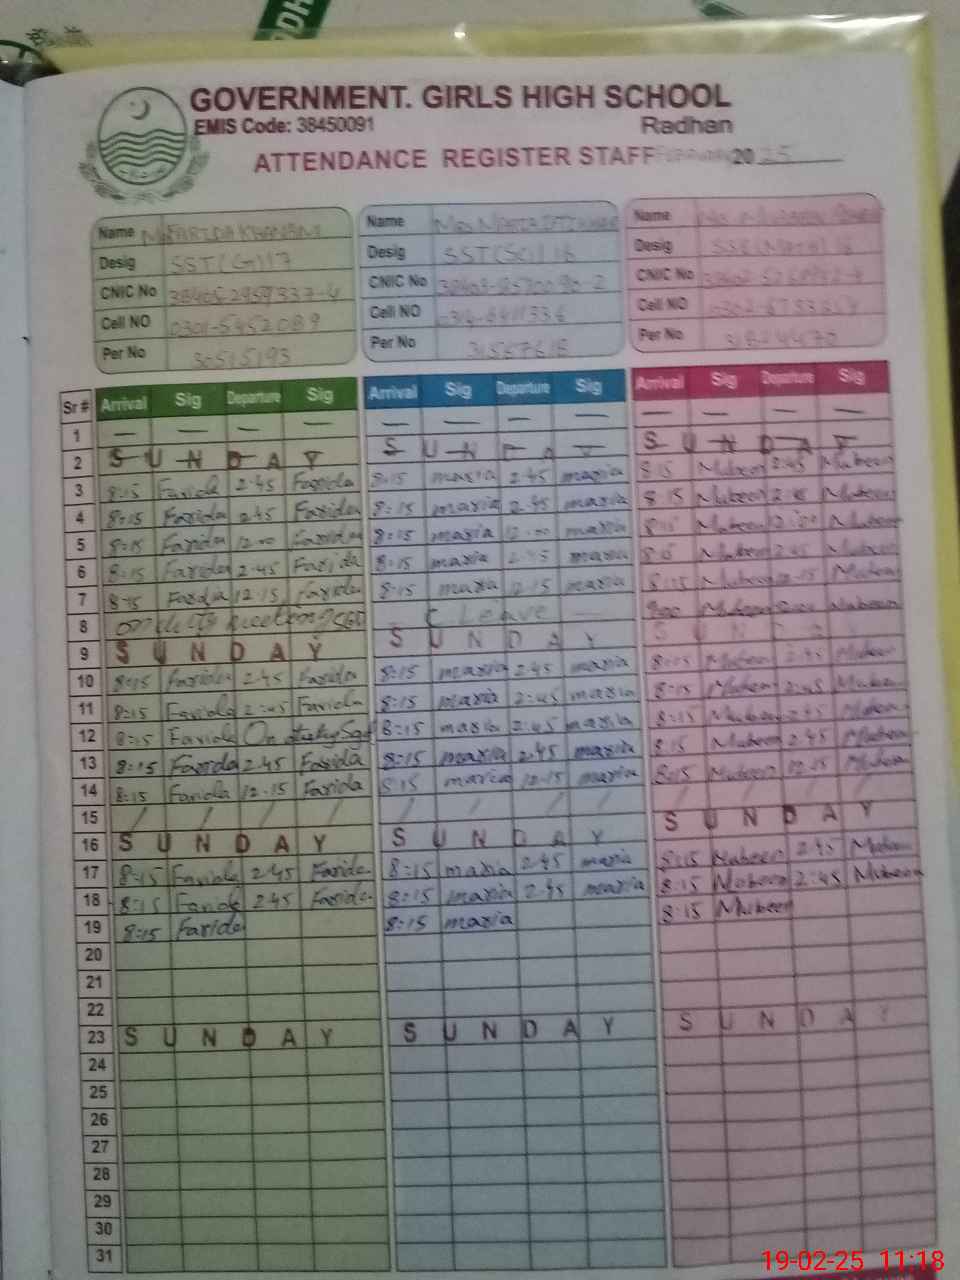 GOVERNMENT. GIRLS HIGH SCHOOL
EMIS Code: 38450091 Radhan
ATTENDANCE REGISTER STAFF 2025
Name FARIDA KHANAM Name Name
Desig SST(G)17 Desig SST(Sc)16 Desig
CNIC No CNIC No CNIC No
Cell NO 0301-5452089 Cell NO Cell No
Per No 30515193 Per No 31567618 Per No
Sr # Arrival Sig Departure Sig Arrival Sig Departure Sig Arrival Sig Departure Sig
1 — — — — — — — — — — — —
2 S U N D A Y S U N D A Y S U N D A Y
3 8:15 Farida 2:45 Farida 8:15 maria 2:45 maria 8:15 Mubeen 2:45 Mubeen
4 8:15 Farida 2:45 Farida 8:15 maria 2:45 maria 8:15 Mubeen 2:45 Mubeen
5 8:15 Farida 12:00 Farida 8:15 maria 12:00 maria 8:15 Mubeen 12:00 Mubeen
6 8:15 Farida 2:45 Farida 8:15 maria 2:45 maria 8:15 Mubeen 2:45 Mubeen
7 8:15 Farida 12:15 Farida 8:15 maria 12:15 maria 8:15 Mubeen 12:15 Mubeen
8 on duty meeting C Leave 9:00 Mubeen Mubeen
9 S U N D A Y S U N D A Y S U N D A Y
10 8:15 Farida 2:45 Farida 8:15 maria 2:45 maria 8:15 Mubeen 2:45 Mubeen
11 8:15 Farida 2:45 Farida 8:15 maria 2:45 maria 8:15 Mubeen 2:45 Mubeen
12 8:15 Farida On duty 8:15 maria 2:45 maria 8:15 Mubeen 2:45 Mubeen
13 8:15 Farida 2:45 Farida 8:15 maria 2:45 maria 8:15 Mubeen 2:45 Mubeen
14 8:15 Farida 12:15 Farida 8:15 maria 12:15 maria 8:15 Mubeen 12:15 Mubeen
15 / / / / / / / / / / / /
16 S U N D A Y S U N D A Y S U N D A Y
17 8:15 Farida 2:45 Farida 8:15 maria 2:45 maria 8:15 Mubeen 2:45 Mubeen
18 8:15 Farida 2:45 Farida 8:15 maria 2:45 maria 8:15 Mubeen 2:45 Mubeen
19 8:15 Farida 8:15 maria 8:15 Mubeen
20
21
22
23 S U N D A Y S U N D A Y S U N D A Y
24
25
26
27
28
29
30
31
19-02-25 11:18